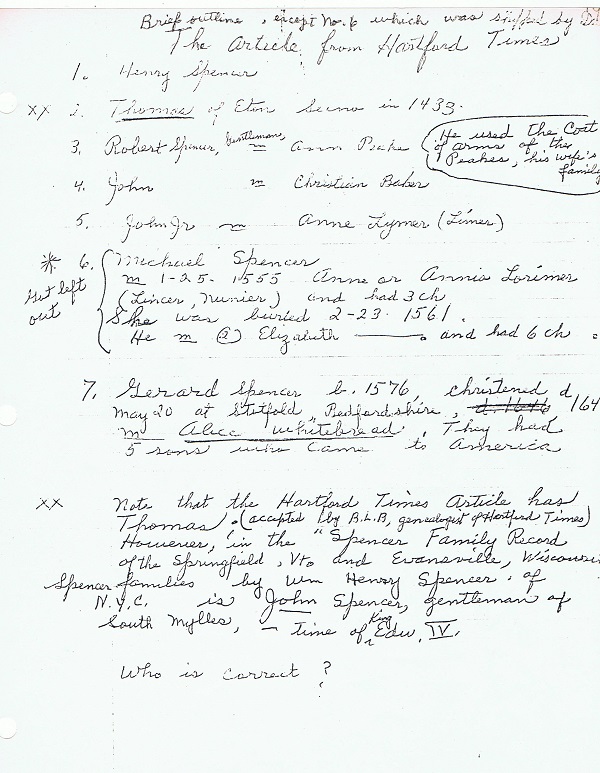 Brief outline, except No. 6 which was supplied by
The Article from Hartford Times
1. Henry Spencer
xx 2. Thomas of Eton Socon in 1433.
3. Robert Spencer, gentleman, m Ann Peake (He used the Coat of arms of the Peakes, his wife's family
4. John m Christian Baker
5. John Jr m Anne Lymer (Limer)
* 6. Michael Spencer
Get left out m 1-25-1555 Anne or Annis Lorimer
(Limcer, Nunier) and had 3 ch
She was buried 2-23-1561.
He m (2) Elizabeth ———. and had 6 ch.
7. Gerard Spencer b. 1576, christened d
May 20 at Stotfold, Bedfordshire, d. 1646 /164
m Alice Whitebread. They had
5 sons who came to America
xx Note that the Hartford Times Article has
Thomas. (accepted by B.L.B, genealogist of Hartford Times)
However, in the "Spencer Family Record
of the Springfield, Vt. and Evansville, Wisconsin
Spencer families by Wm Henry Spencer, of
N.Y.C. is John Spencer, gentleman of
South Mylles, — time of King Edw. IV.
Who is correct?